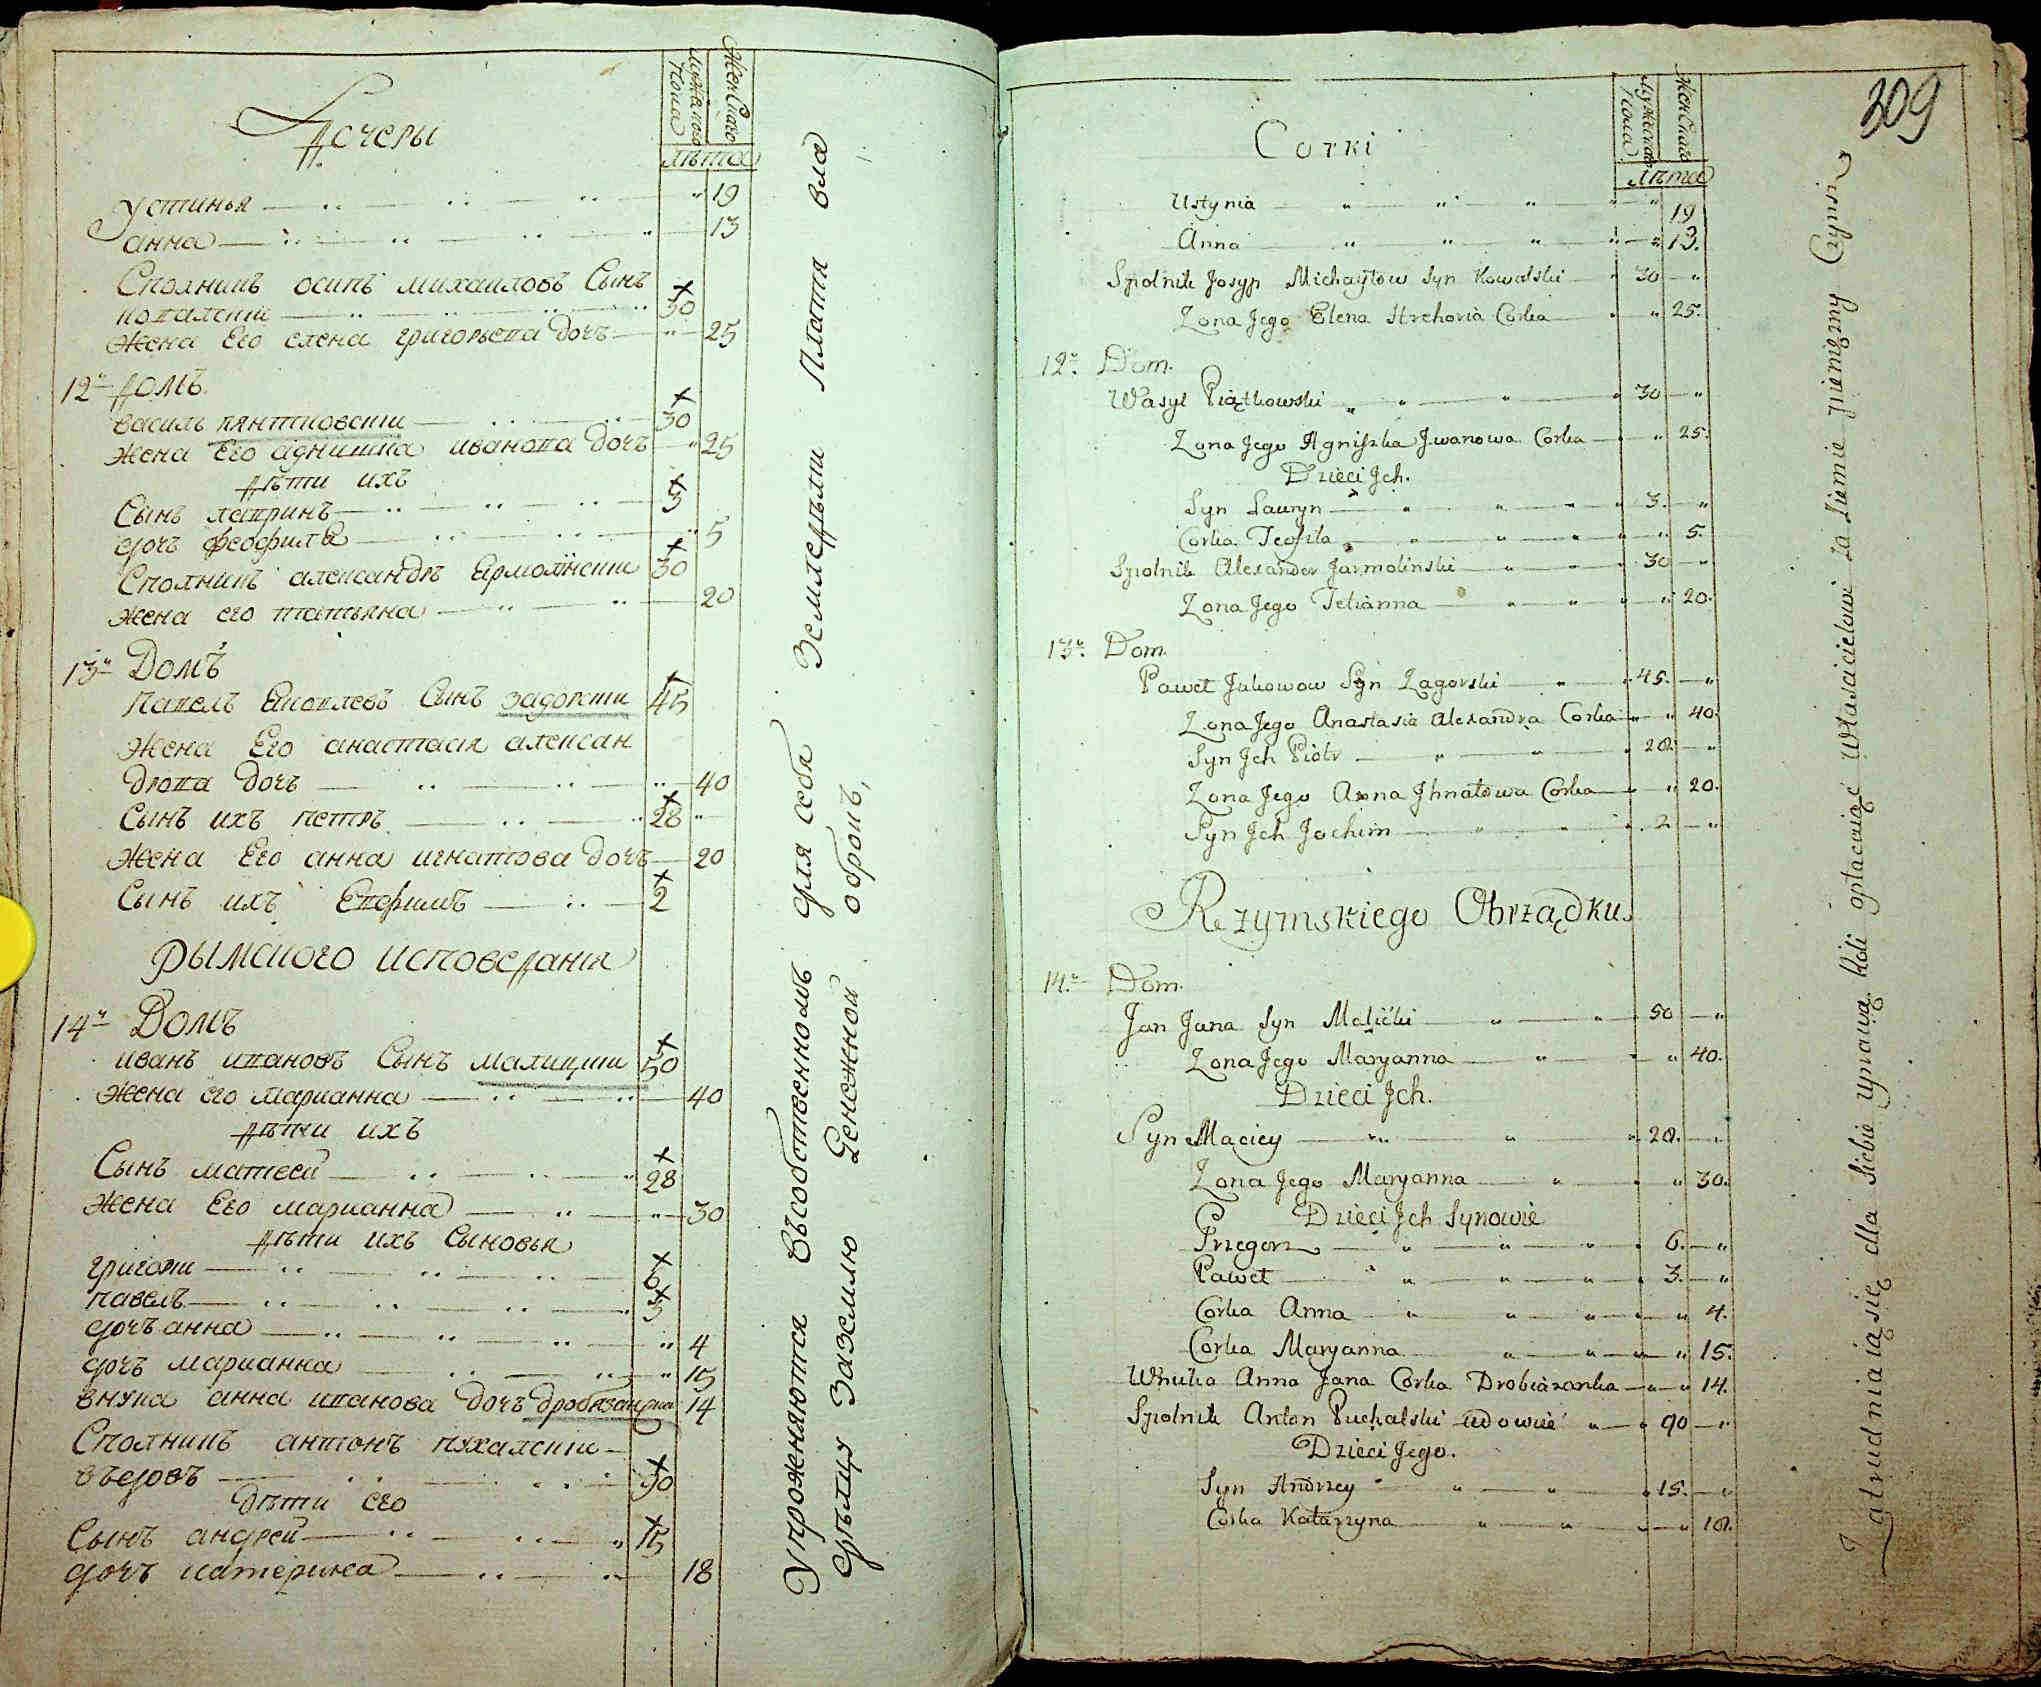 Дочеры
Мужеского Пола
Женскаго
лѣта
Устинья 19
анна 13
Сполникъ осипъ михаиловъ Сынъ
ковалскии 30
жена Его елена григорьева дочь 25
12й домъ
василь пянтковскии 30
жена Его агнишка иванова дочь 25
дѣти ихъ
Сынъ лавринъ 3
дочь феофила 5
Сполникъ александръ Ярмолинскии 30
жена его татьяна 20
13й Домъ
павелъ Яковлевъ Сынъ загорскии 45
жена Его анастасия алексан
дрова дочь 40
Сынъ ихъ петръ 28
жена Его анна игнатова дочь 20
Сынъ ихъ Евфимъ 2
рымского исповедания
14й Домъ
иванъ ивановъ Сынъ малицкии 50
жена его марианна 40
дѣти ихъ
Сынъ матвеи 28
жена Его марианна 30
дѣти ихъ Сыновья
григории 6
павелъ 3
дочь анна 4
дочь марианна 15
внука анна иванова дочь 14
Сполникъ антонъ пухалскии
въдовъ 90
дѣти его
Сынъ андреи 15
дочь катерина 18
Упроженяются Въсобственномъ для себя Земледѣлии Платя вла
дѣлцу Заземлю Денежной оброкъ,
309
Corki
Мужескаго Пола
Женскаго
лѣта
Ustynia 19
Anna 13.
Spolnik Josyp Michayłow Syn Kowalski 30
Zona Jego Elena Hrehoria Corka 25.
12o. Dom.
Wasyl Piątkowski 30
Zona Jego Agniszka Jwanowa Corka 25.
Dzieci Jch.
Syn Lauryn 3.
Corka Teofila 5.
Spolnik Alexander Jarmolinski 30
Zona Jego Tetianna 20.
13o. Dom.
Paweł Jakowow Syn Zagorski 45.
Zona Jego Anastasia Alexandra Corka 40.
Syn Jch Piotr 28.
Zona Jego Anna Jhnatowa Corka 20.
Syn Jch Jochim 2
Rzymskiego Obrządku.
14o. Dom.
Jan Jana Syn Malicki 50
Zona Jego Maryanna 40.
Dzieci Jch.
Syn Maciey 28.
Zona Jego Maryanna 30.
Dzieci Jch Synowie
Przegorz 6.
Paweł 3.
Corka Anna 4.
Corka Maryanna 15.
Wnuka Anna Jana Corka Drobiazanka 14.
Spolnik Anton Puchalski wdowiec 90
Dzieci Jego.
Syn Andrzey 15.
Corka Katarzyna 18.
Zatrudniaiąsię dla siebie uprawą Roli opłacaiąc właścicielowi za Ziemie pieniężny Czynsz